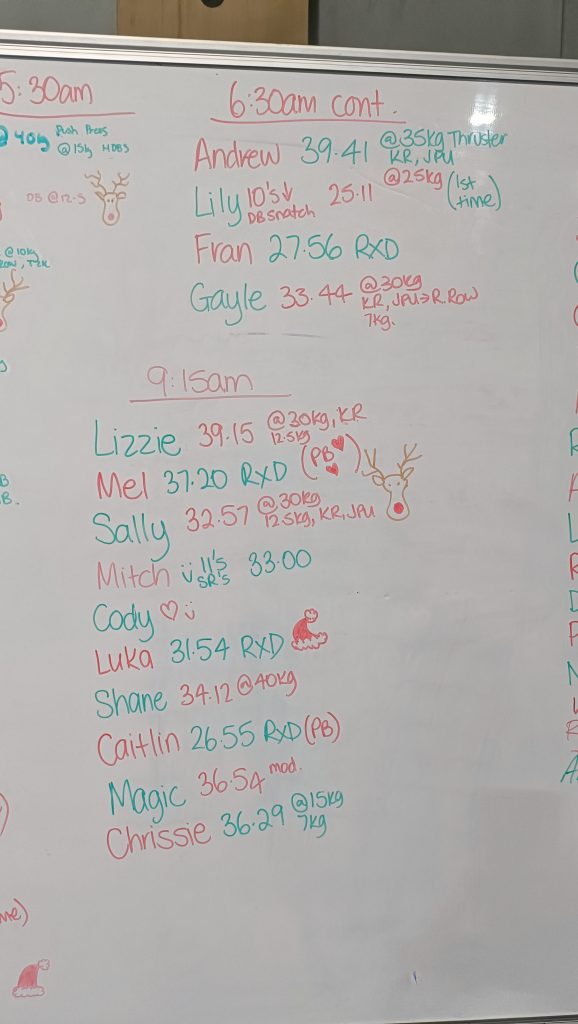 5:30am
@ 40kg Push Press
@15kg HDBS
DB @12.5
@10kg
Row, T2R
6:30am cont.
Andrew 39.41 @35kg Thruster
KR, JPU
Lily 10's↓ 25.11 @25kg (1st time)
DB Snatch
Fran 27.56 RXD
Gayle 33.44 @30kg
KR, JPU→R.Row
7kg.
9:15am
Lizzie 39.15 @30kg, KR
12.5kg
Mel 37.20 RXD (PB)
Sally 32.57 @30kg
12.5kg, KR, JPU
Mitch 11's 33.00
SR's
Cody
Luka 31.54 RXD
Shane 34.12 @40kg
Caitlin 26.55 RXD (PB)
Magic 36.54 mod.
Chrissie 36.29 @15kg
7kg